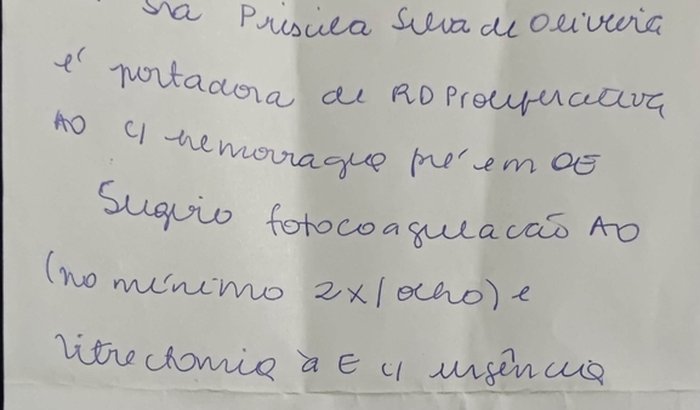 Sra Priscila Silva de Oliveira
é portadora de RD Proliferativa
AO c/ hemorragia pré em OE
Sugiro fotocoagulação AO
(no mínimo 2x/olho) e
Vitrectomia à E c/ urgência